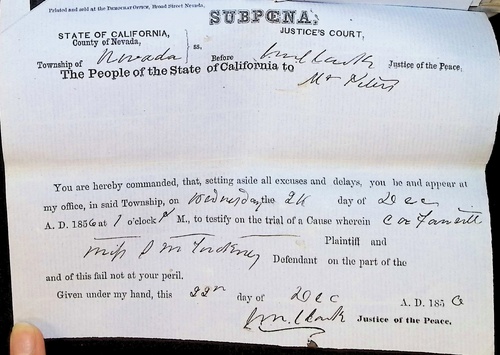 Printed and sold at the DEMOCRAT OFFICE, Broad Street Nevada,
SUBPŒNA,
STATE OF CALIFORNIA,
County of Nevada,
ss.
JUSTICE'S COURT,
Township of Nevada Before Justice of the Peace,
The People of the State of California to
Mr Peters
You are hereby commanded, that, setting aside all excuses and delays, you be and appear at
my office, in said Township, on Wednesday the 24 day of Dec
A. D. 1856 at 1 o'clock P M., to testify on the trial of a Cause wherein
Miss Plaintiff and
Defendant on the part of the
and of this fail not at your peril.
Given under my hand, this 22n day of Dec A. D. 1856
Wm. Clark Justice of the Peace.